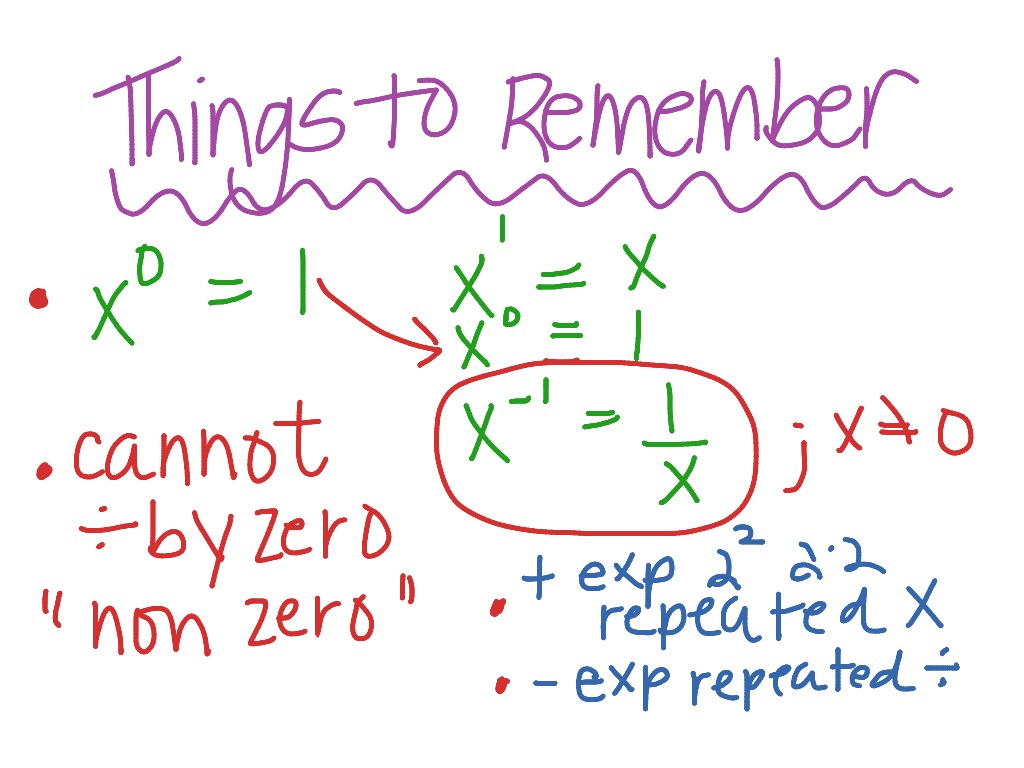 Things to Remember
• x⁰ = 1
x¹ = x
x⁰ = 1
x⁻¹ = 1/x ; x ≠ 0
• cannot
÷ by zero
"non zero"
• + exp 2² 2·2
repeated X
• - exp repeated ÷